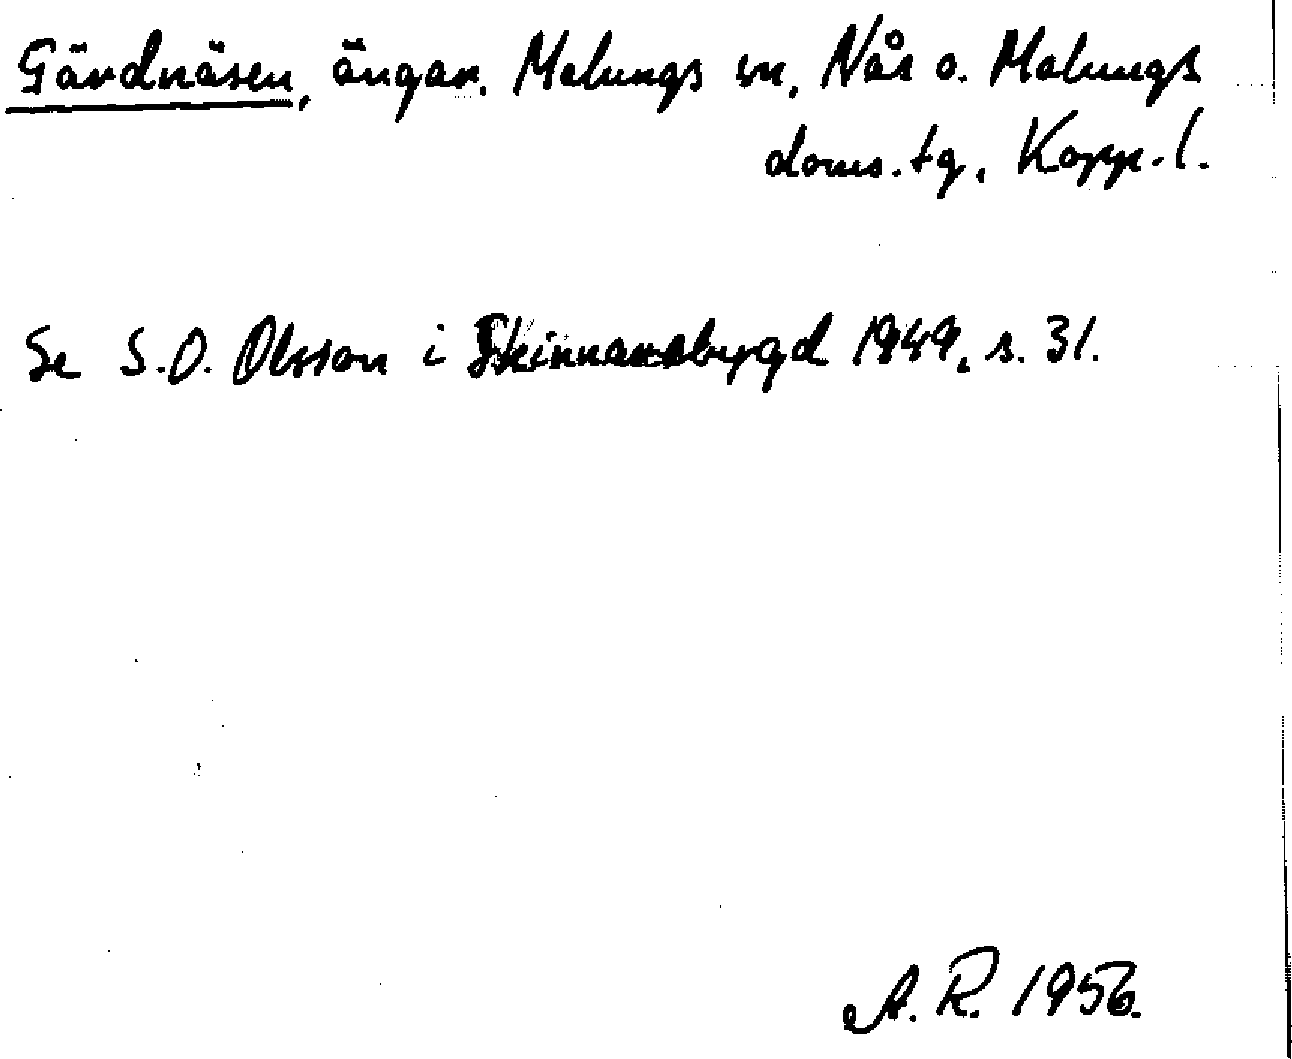 Gärdnäsen, ängar. Malungs sn, Nås o. Malungs
doms.tg, Kopp.l.
Se S.O. Olsson i Skinnarebygd 1949, s. 31.
A.R. 1956.